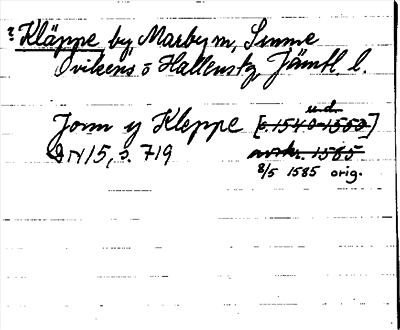 ? Kläppe by, Marby sn, Sunne
Ovikens o Hallens tg, Jämtl. l.
und.
Jonn y Kleppe [c. 1540-1550]
DN 15, s. 719 avskr. 1585
8/5 1585 orig.